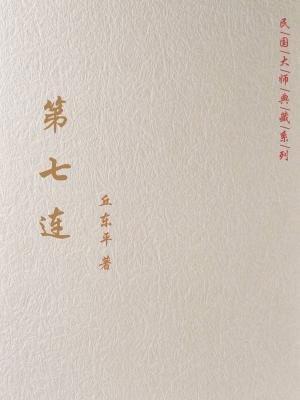 民|国|大|师|典|藏|系|列
第七连
丘东平 著